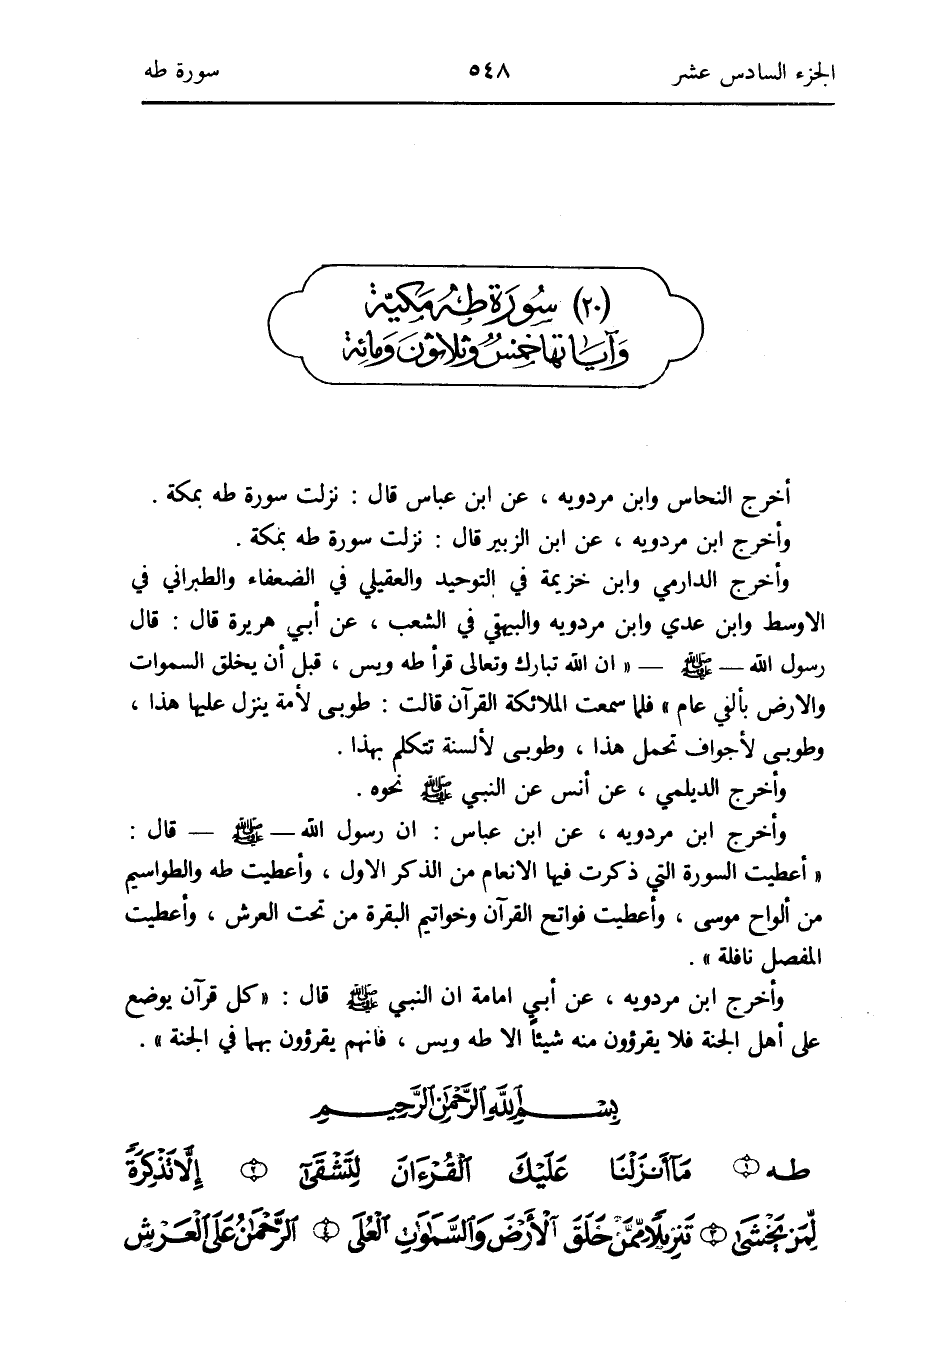 الجزء السادس عشر ٥٤٨ سورة طه
(٢٠) سُورَة طٰه مَكيّة
وَآيَاتهَا خَمسٌ وَثلاثونَ وَمائة
أخرج النحاس وابن مردويه ، عن ابن عباس قال : نزلت سورة طه بمكة .
وأخرج ابن مردويه ، عن ابن الزبير قال : نزلت سورة طه بمكة .
وأخرج الدارمي وابن خزيمة في التوحيد والعقيلي في الضعفاء والطبراني في
الاوسط وابن عدي وابن مردويه والبيهقي في الشعب ، عن أبي هريرة قال : قال
رسول الله — ﷺ — « ان الله تبارك وتعالى قرأ طه ويس ، قبل أن يخلق السموات
والارض بألفي عام » فلما سمعت الملائكة القرآن قالت : طوبى لأمة ينزل عليها هذا ،
وطوبى لأجواف تحمل هذا ، وطوبى لألسنة تتكلم بهذا .
وأخرج الديلمي ، عن أنس عن النبي ﷺ نحوه .
وأخرج ابن مردويه ، عن ابن عباس : ان رسول الله — ﷺ — قال :
« أعطيت السورة التي ذكرت فيها الانعام من الذكر الاول ، وأعطيت طه والطواسيم
من ألواح موسى ، وأعطيت فواتح القرآن وخواتيم البقرة من تحت العرش ، وأعطيت
المفصل نافلة » .
وأخرج ابن مردويه ، عن أبي امامة ان النبي ﷺ قال : « كل قرآن يوضع
على أهل الجنة فلا يقرؤون منه شيئاً الا طه ويس ، فانهم يقرؤون بهما في الجنة » .
بِسْمِ ٱللَّهِ ٱلرَّحْمَٰنِ ٱلرَّحِيمِ
طه ١ مَآ أَنزَلْنَا عَلَيْكَ ٱلْقُرْءَانَ لِتَشْقَىٰٓ ٢ إِلَّا تَذْكِرَةً
لِّمَن يَخْشَىٰ ٣ تَنزِيلًا مِّمَّنْ خَلَقَ ٱلْأَرْضَ وَٱلسَّمَٰوَٰتِ ٱلْعُلَى ٤ ٱلرَّحْمَٰنُ عَلَى ٱلْعَرْشِ